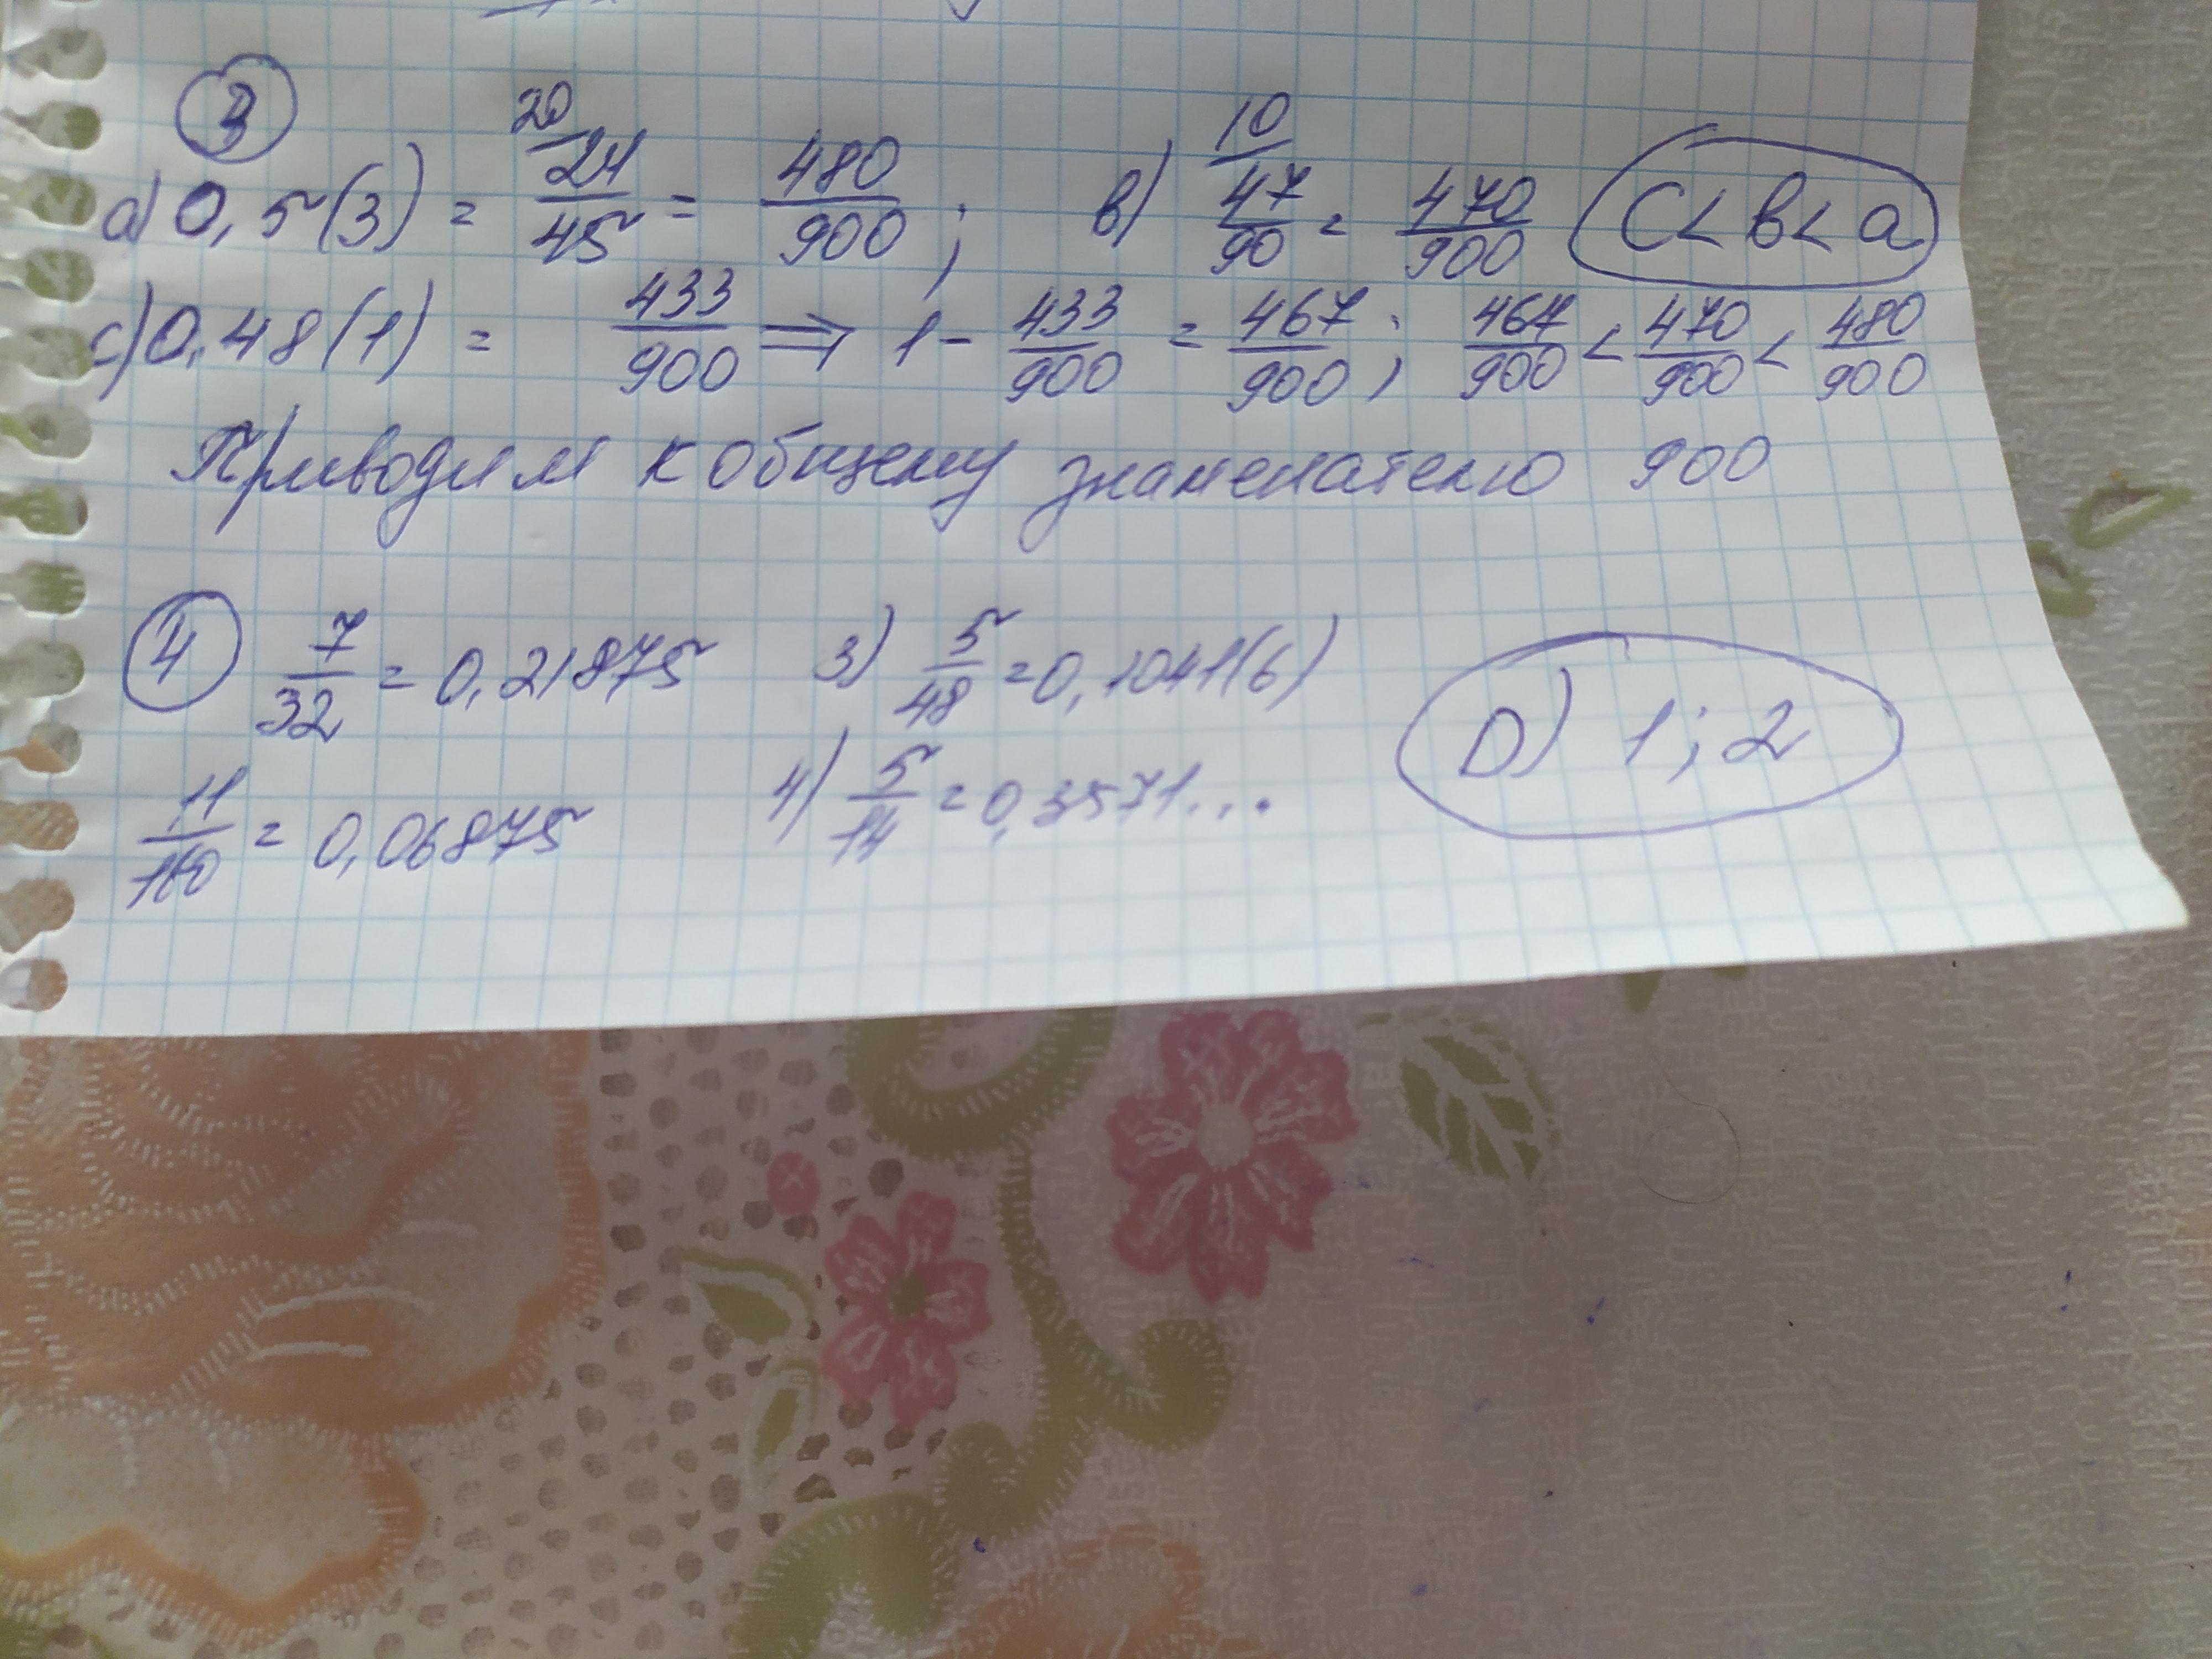 3
a) 0,5(3) = 20/ 24/45 = 480/900 ; в) 10/ 47/90 = 470/900 C < в < a
c) 0,48(1) = 433/900 ⇒ 1 - 433/900 = 467/900 ; 467/900 < 470/900 < 480/900
Приводим к общему знаменателю 900
4 7/32 = 0,21875 3) 5/48 = 0,1041(6)
D) 1; 2
11/160 = 0,06875 4) 5/14 = 0,3571...